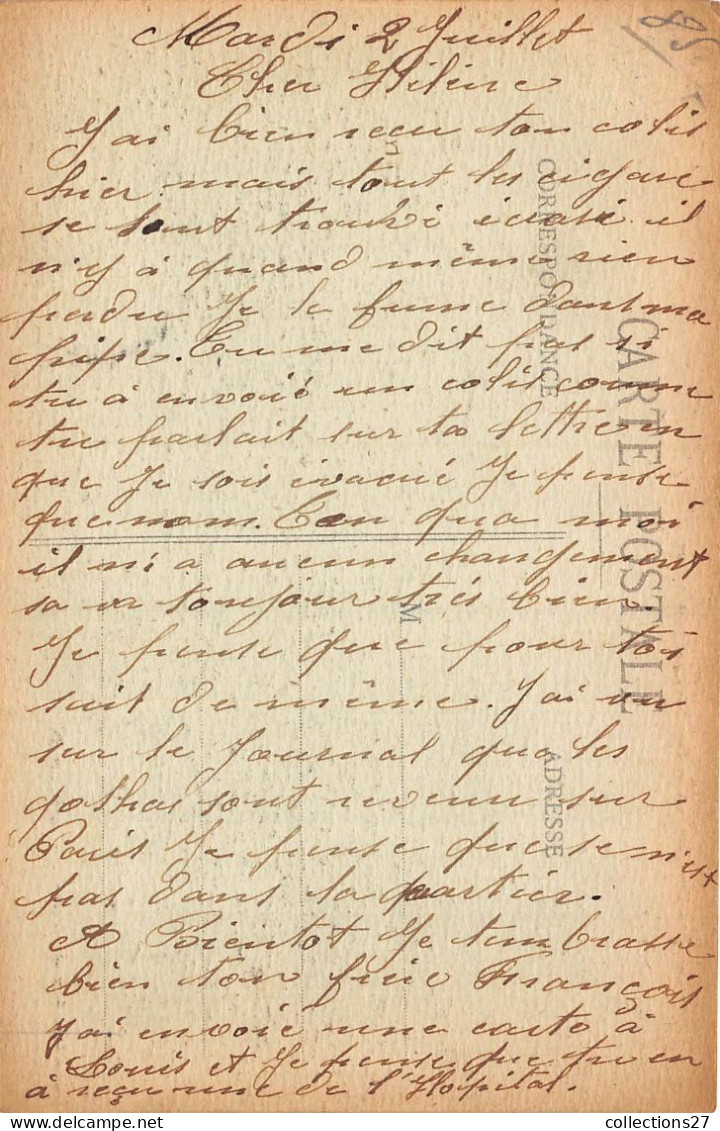 85
Mardi 2 Juillet
Cher Hélène
J'ai bien reçu ton colis
hier mais tout les cigare
se sont trouvé écrasé il
n'y à quand même rien
perdu Je le fume dant ma
pipe. Tu me dit pas si
tu à envoié un colis comme
tu parlait sur ta lettre en
que Je sois évacué Je pense
que nom. Ean qua moi
il ni a aucun changement
sa va toujour très bien
Je pense que pour toi
sait de même. J'ai vu
sur le Journal que les
gothas sont revenu sur
Paris Je pense que se n'est
pas dans la quartier.
A Bientot Je tembrasse
bien ton frère François
J'ai envoié une carte à
Louis et Je pense que tu en
à reçu une de l'Hopital.
CARTE POSTALE
CORRESPONDANCE
ADRESSE
M
collections27